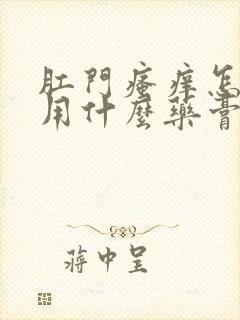 肛門瘙癢怎
用什麼藥膏
蔣中呈